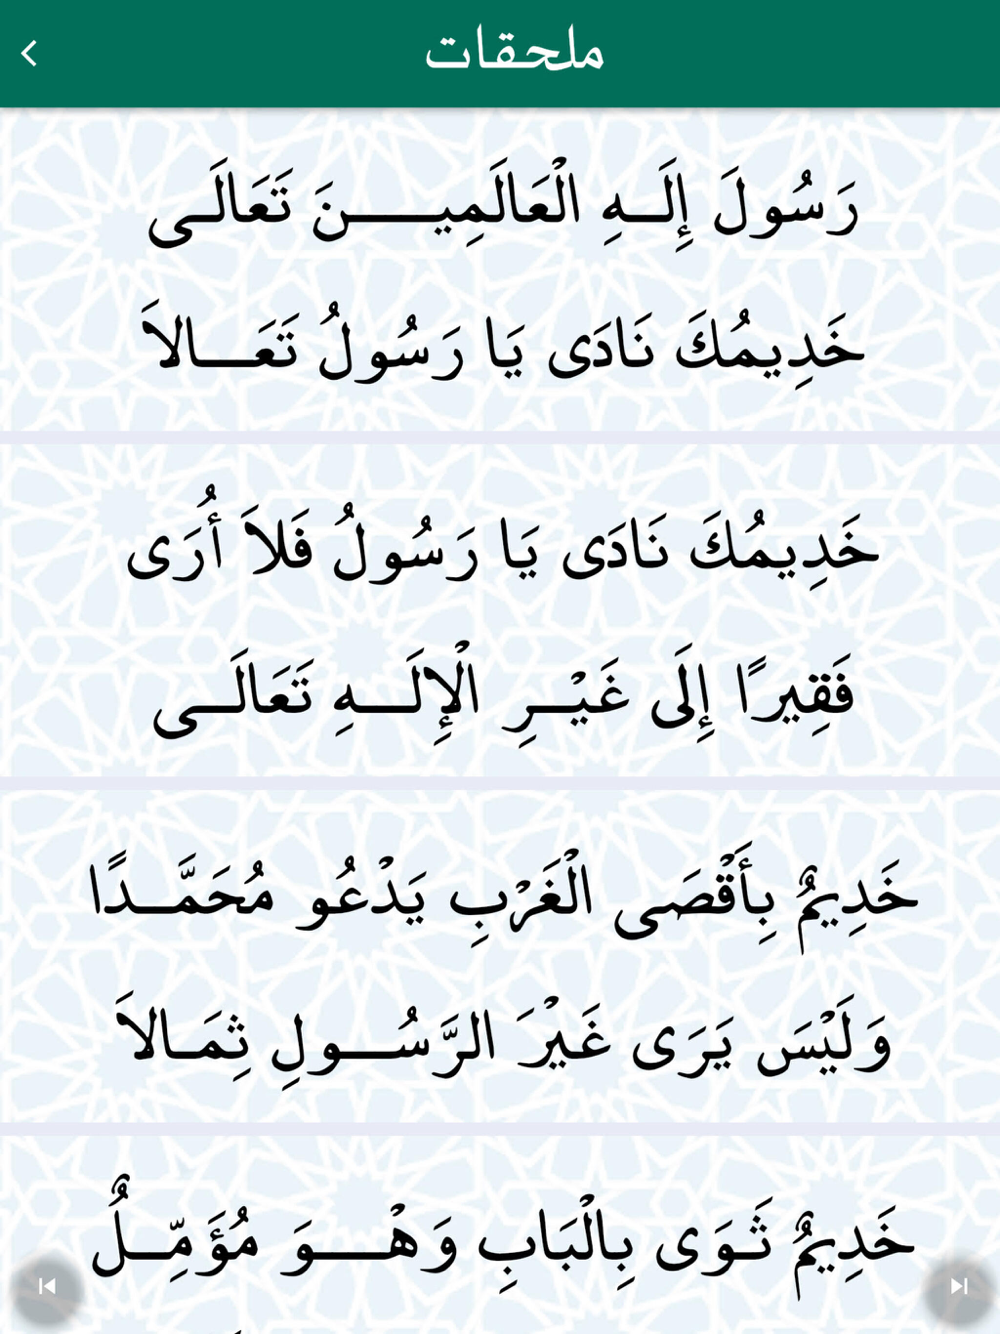 ملحقات
رَسُولَ إِلَهِ الْعَالَمِينَ تَعَالَى
خَدِيمُكَ نَادَى يَا رَسُولُ تَعَالاَ
خَدِيمُكَ نَادَى يَا رَسُولُ فَلاَ أُرَى
فَقِيرًا إِلَى غَيْرِ الْإِلَهِ تَعَالَى
خَدِيمٌ بِأَقْصَى الْغَرْبِ يَدْعُو مُحَمَّدًا
وَلَيْسَ يَرَى غَيْرَ الرَّسُولِ ثِمَالاَ
خَدِيمٌ ثَوَى بِالْبَابِ وَهْوَ مُؤَمِّلٌ